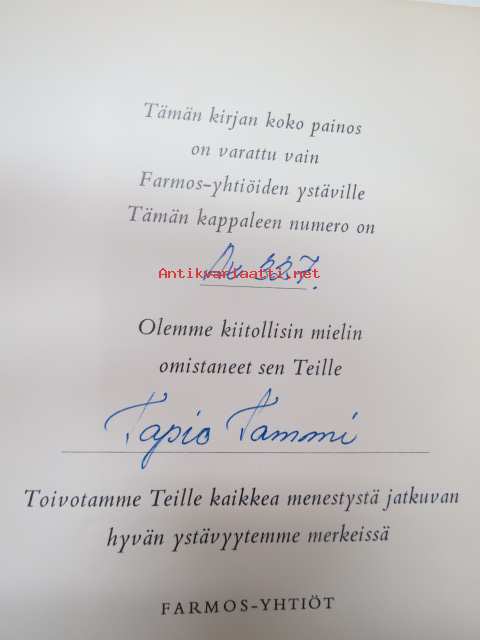 Tämän kirjan koko painos
on varattu vain
Farmos-yhtiöiden ystäville
Tämän kappaleen numero on
227.
Antikvariaatti.net
Olemme kiitollisin mielin
omistaneet sen Teille
Tapio Tammi
Toivotamme Teille kaikkea menestystä jatkuvan
hyvän ystävyytemme merkeissä
FARMOS-YHTIÖT